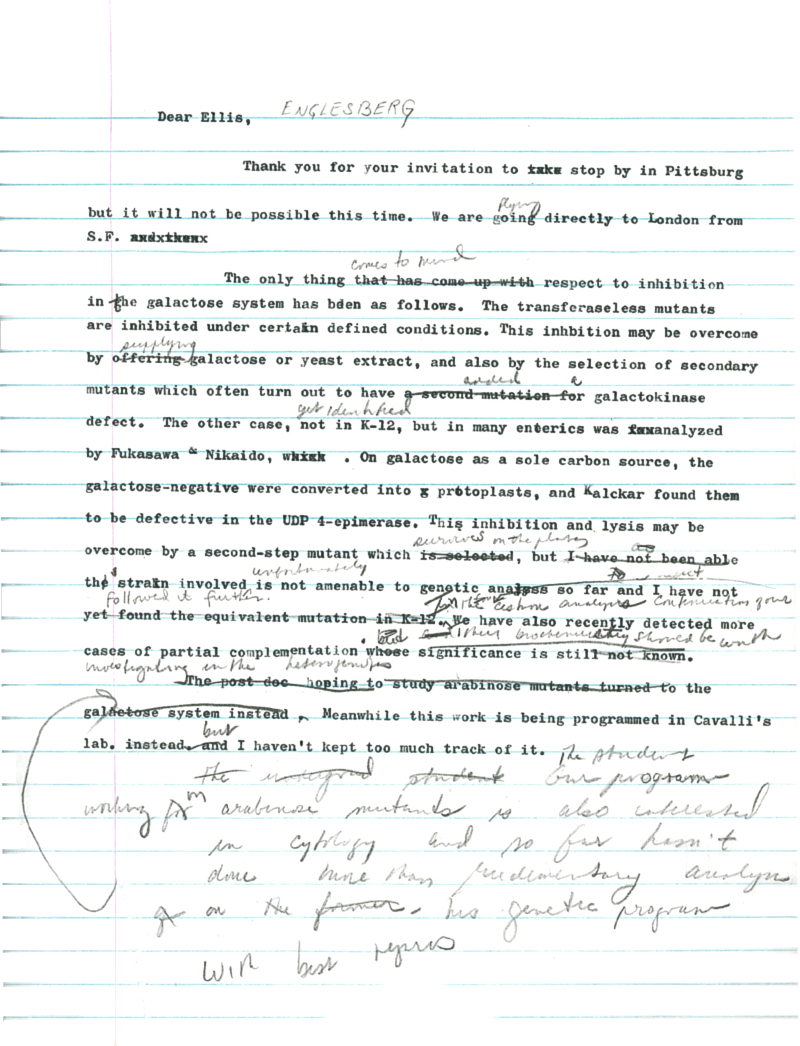 Dear Ellis, ENGLESBERG
Thank you for your invitation to take stop by in Pittsburg
flying
but it will not be possible this time. We are going directly to London from
S.F. andxthenx
comes to mind
The only thing that has come up with respect to inhibition
in the galactose system has bden as follows. The transferaseless mutants
are inhibited under certain defined conditions. This inhbition may be overcome
supplying
by offering galactose or yeast extract, and also by the selection of secondary
added a
mutants which often turn out to have a second mutation for galactokinase
yet identified
defect. The other case, not in K-12, but in many enterics was analyzed
by Fukasawa & Nikaido, which . On galactose as a sole carbon source, the
galactose-negative were converted into protoplasts, and Kalckar found them
to be defective in the UDP 4-epimerase. This inhibition and lysis may be
survives on the plates
overcome by a second-step mutant which is selected, but I have not been able
unfortunately
the strain involved is not amenable to genetic analysis so far and I have not
followed it further.
yet found the equivalent mutation in K-12. We have also recently detected more
analysis
cases of partial complementation whose significance is still not known.
investigating in the heterogenotes
The post doc hoping to study arabinose mutants turned to the
galactose system instead Meanwhile this work is being programmed in Cavalli's
but
lab. instead. and I haven't kept too much track of it. The student
the student our program
working arabinose mutants is also interested
in cytology and so far hasn't
done more than rudimentary analysis
on the former his genetic program
With best regards